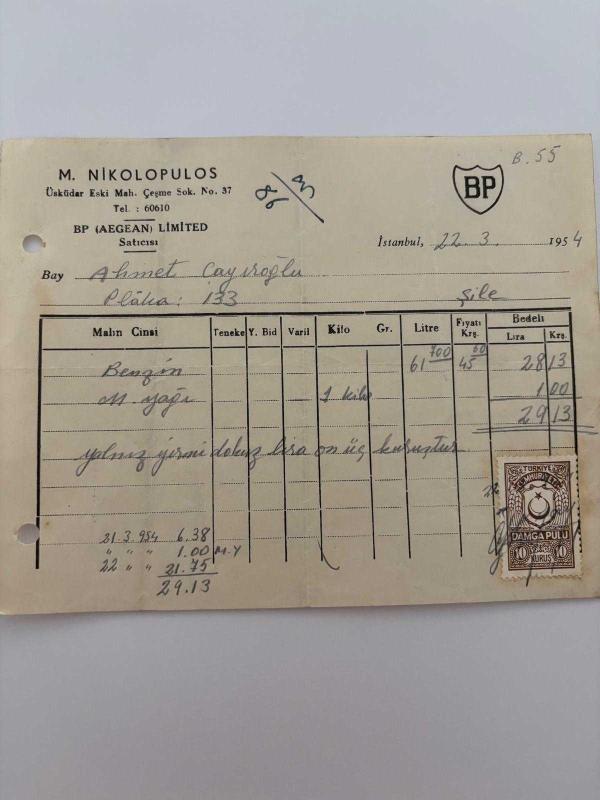 M. NİKOLOPULOS
Üsküdar Eski Mah. Çeşme Sok. No. 37
Tel. : 60610
BP (AEGEAN) LIMITED
Satıcısı
BP
B. 55
İstanbul, 22.3. 1954
Bay Ahmet Cayıroğlu
Plâka: 133 Şile
Malın Cinsi Teneke Y. Bid Varil Kilo Gr. Litre Fiyatı Krş. Bedeli Lira Krş.
Benzin 61 700 45 60 28 13
M. yağı 1 kilo 1 00
29 13
yalnız yirmi dokuz lira on üç kuruştur
21.3.954 6.38
" " " 1.00 M.Y
22 " " 21.75
29.13
TÜRKİYE
CUMHURİYETİ
DAMGA PULU
10 KURUŞ 10